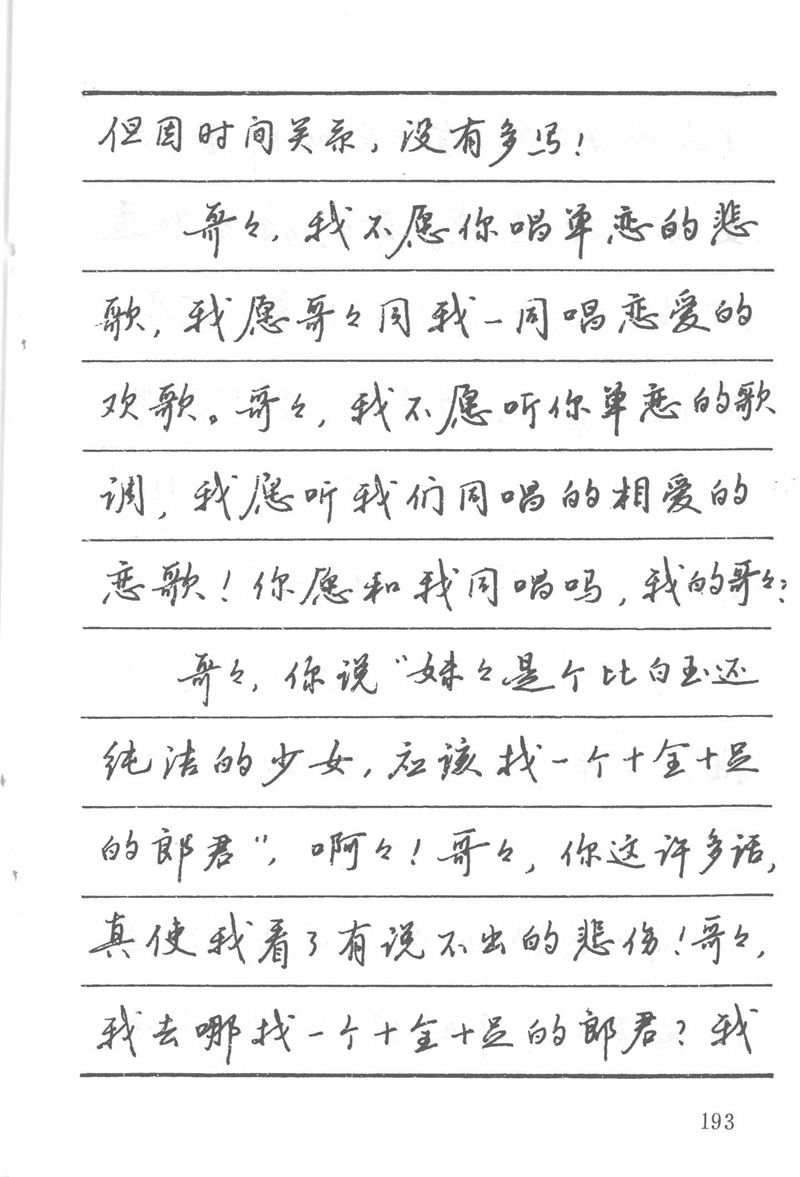 但因时间关系，没有多写！
哥々，我不愿你唱单恋的悲
歌，我愿哥々同我一同唱恋爱的
欢歌。哥々，我不愿听你单恋的歌
调，我愿听我们同唱的相爱的
恋歌！你愿和我同唱吗，我的哥々？
哥々，你说“妹々是个比白玉还
纯洁的少女，应该找一个十全十足
的郎君”，啊々！哥々，你这许多话，
真使我看了有说不出的悲伤！哥々，
我去哪找一个十全十足的郎君？我
193